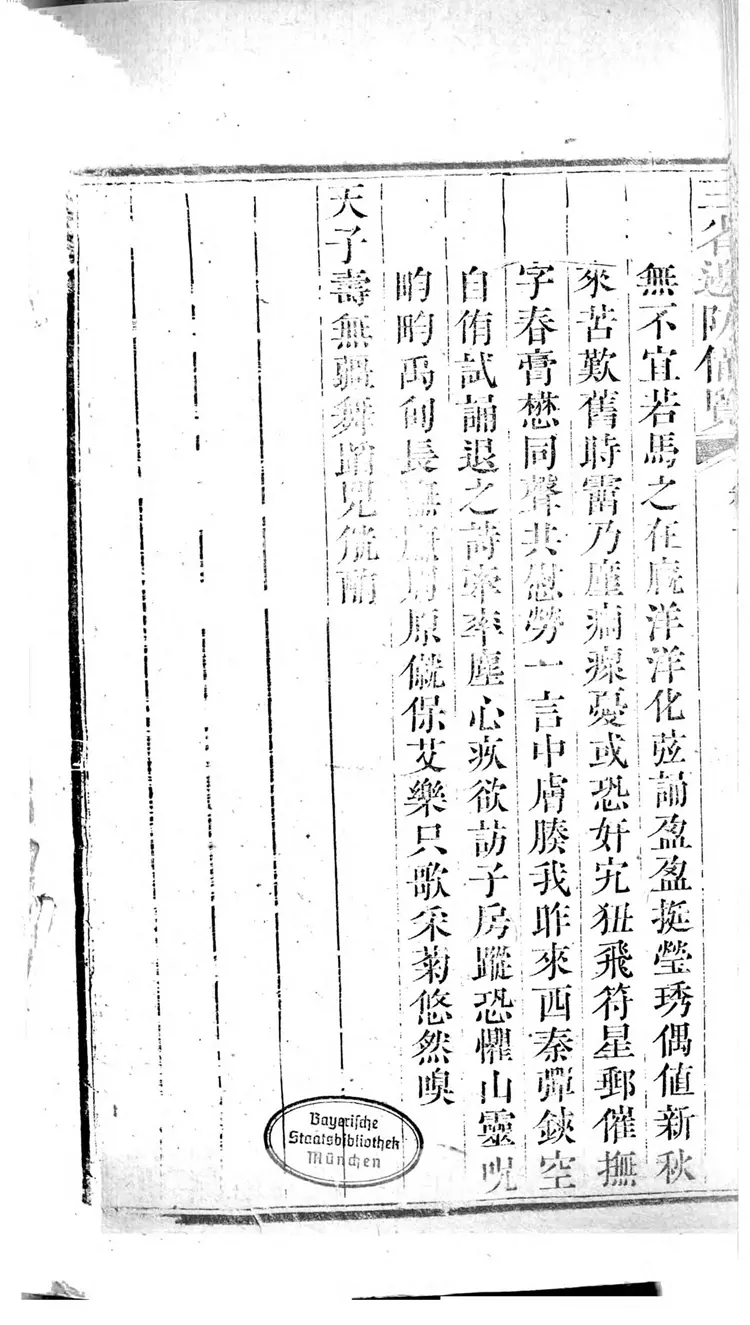 三省邊防備覽
無不宜若馬之在廐洋洋化弦誦盈盈挺瑩琇偶值新秋
來苦歎舊時霤乃塵痌瘝憂或恐奸宄狃飛符星郵催撫
字春膏懋同聲共慰勞一言中膚腠我昨來西秦彈鋏空
自侑試誦退之詩牽率塵心疚欲訪子房蹤恐懼山靈呪
畇畇禹甸長膴膴周原僦保艾樂只歌采菊悠然嗅
天子壽無疆舞蹈兕觥酭
Bayerische
Staatsbibliothek
München